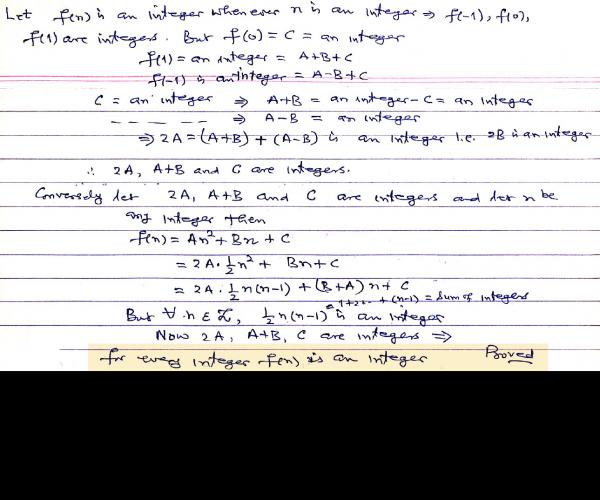 Let f(n) is an integer whenever n is an integer ⇒ f(-1), f(0),
f(1) are integers. But f(0) = C = an integer
f(1) = an integer = A+B+C
f(-1) is an integer = A-B+C
C = an integer ⇒ A+B = an integer - C = an integer
— — — — — ⇒ A-B = an integer
⇒ 2A = (A+B) + (A-B) is an integer i.e. 2B is an integer
∴ 2A, A+B and C are integers.
Conversely let 2A, A+B and C are integers and let n be
any integer then
f(n) = An² + Bn + C
= 2A. ½n² + Bn + C
= 2A. ½n(n-1) + (B+A) n + C
= 1+2+-- + (n-1) = Sum of integers
But ∀ n ∈ Z, ½n(n-1) is an integer
Now 2A, A+B, C are integers ⇒
for every integer f(n) is an integer Proved